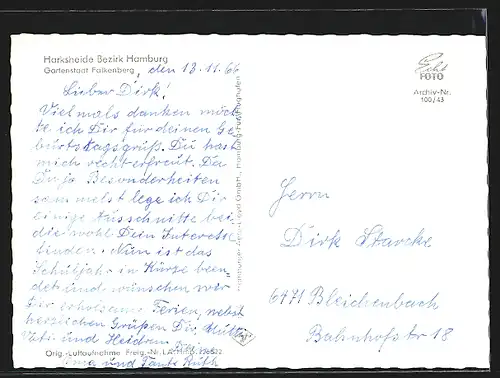 Harksheide Bezirk Hamburg
Gartenstadt Falkenberg, den 13.11.66
Lieber Dirk!
Vielmals danken möch
te ich Dir für deinen Ge
burtstagsgruß. Du hast
mich recht erfreut. Da
Du ja Besonderheiten
sammelst lege ich Dir
einige Ausschnitte bei
die wohl Dein Interesse
finden. Nun ist das
Schuljahr in Kürze been
det und wünschen wir
Dir erholsame Ferien, nebst
herzlichen Grüßen Dir, Mutti
Vati und Heidrun
und Tante Ruth
Orig.-Luftaufnahme Freig.-Nr. L.A.
Echt
FOTO
Archiv-Nr.
100/43
Herrn
Dirk Starcke
6471 Bleichenbach
Bahnhofstr 18